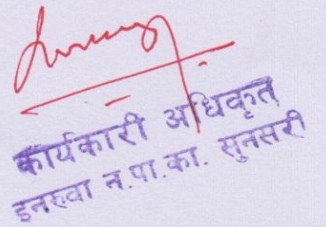 कार्यकारी अधिकृत
इनरुवा न.पा.का. सुनसरी